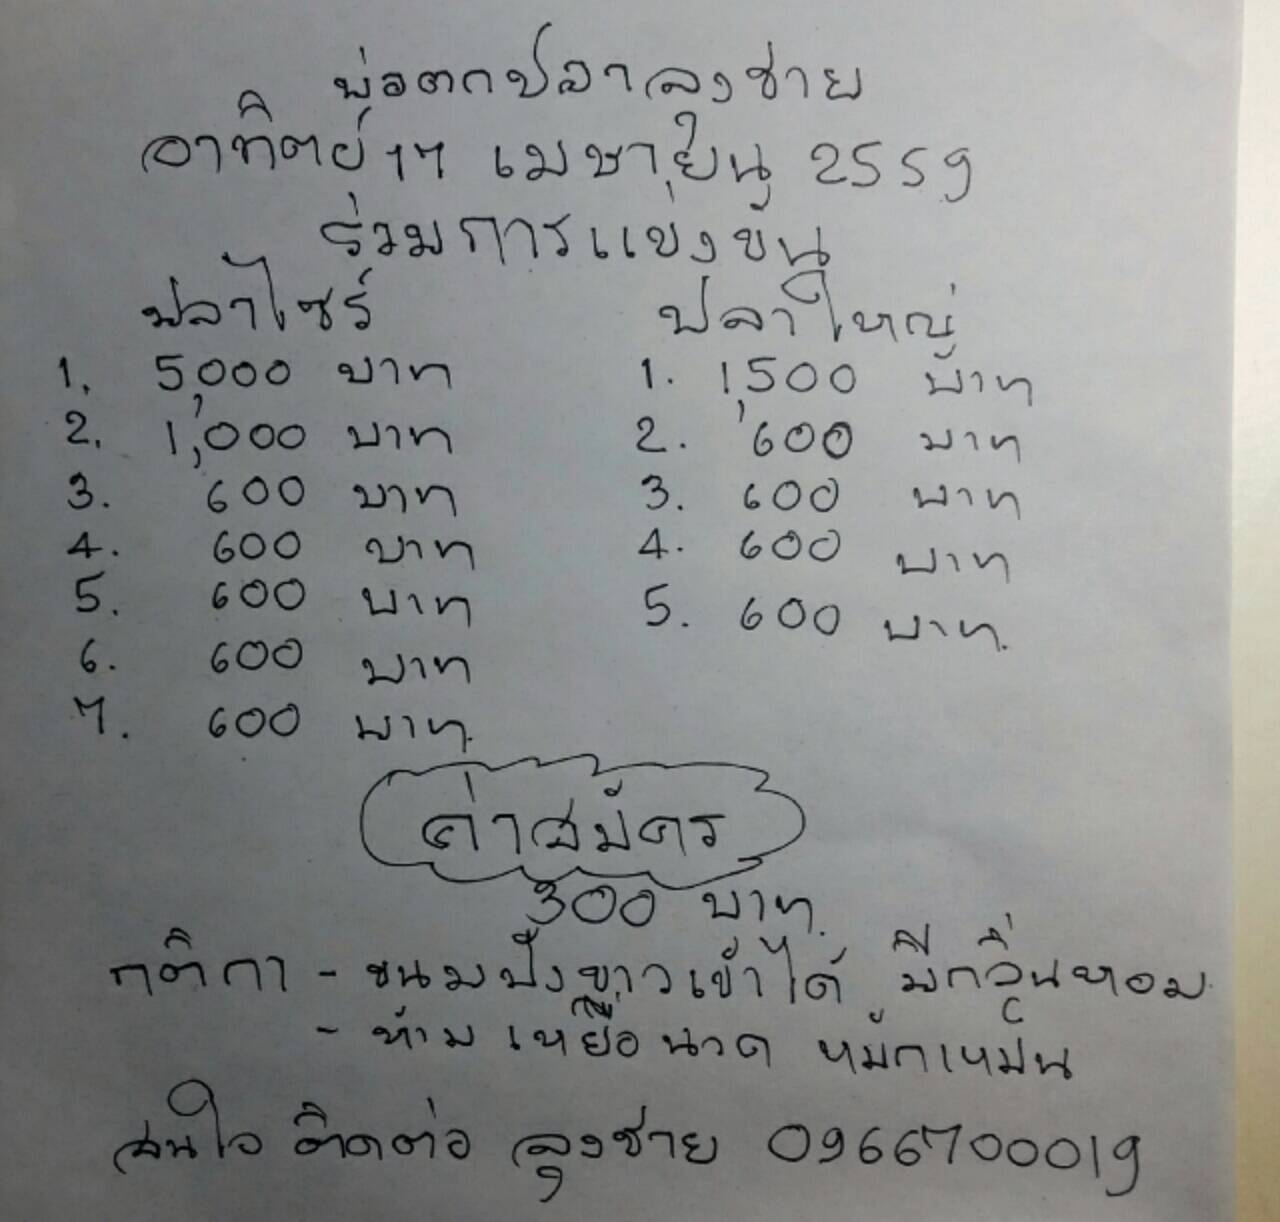 บ่อตกปลาลุงชาย
อาทิตย์ 17 เมษายน 2559
ร่วมการแข่งขัน
ปลาไซร์ ปลาใหญ่
1. 5,000 บาท 1. 1,500 บาท
2. 1,000 บาท 2. 600 บาท
3. 600 บาท 3. 600 บาท
4. 600 บาท 4. 600 บาท
5. 600 บาท 5. 600 บาท
6. 600 บาท
7. 600 บาท
ค่าสมัคร
300 บาท
กติกา - ขนมปังขาวเข้าได้ มีกลิ่นหอม
- ห้ามเหยื่อนวด หมักเหม็น
สนใจ ติดต่อ ลุงชาย 0966700019